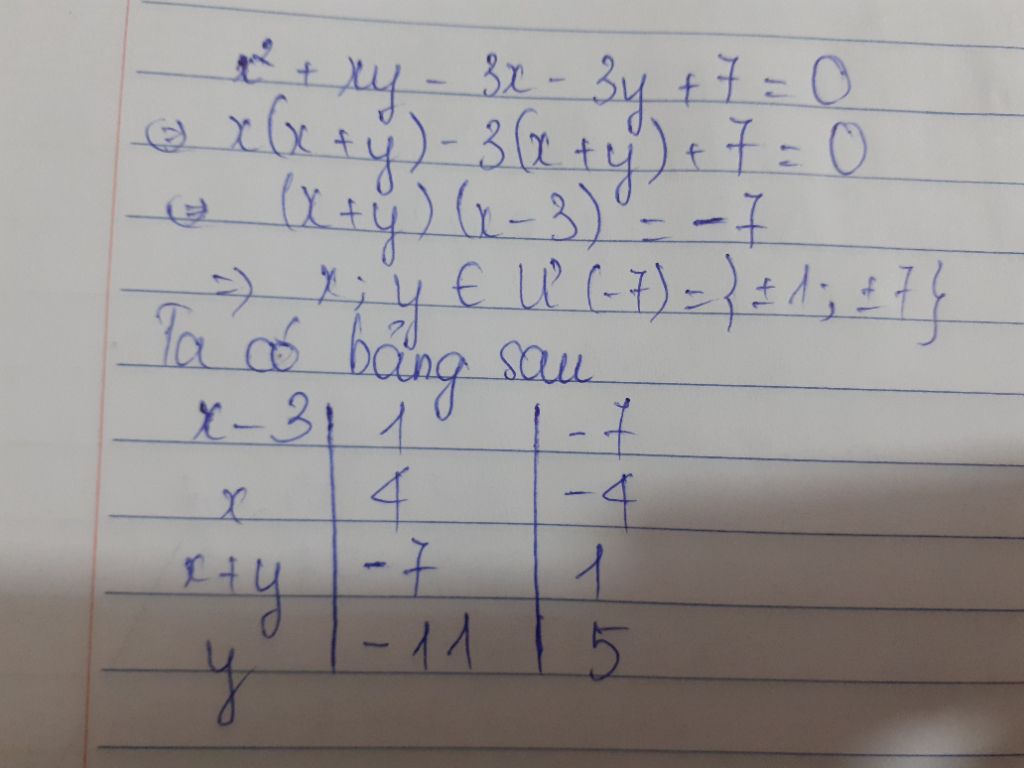 x² + xy - 3x - 3y + 7 = 0
⇔ x(x + y) - 3(x + y) + 7 = 0
⇔ (x + y) (x - 3) = -7
⇒ x; y ∈ Ư (-7) = {±1; ±7}
Ta có bảng sau
x - 3 | 1 | -7
x | 4 | -4
x + y | -7 | 1
y | -11 | 5